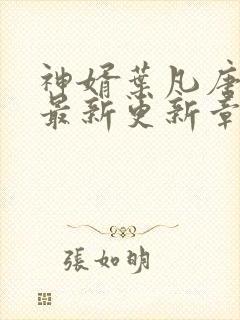 神婿葉凡唐
最新更新章
張如明